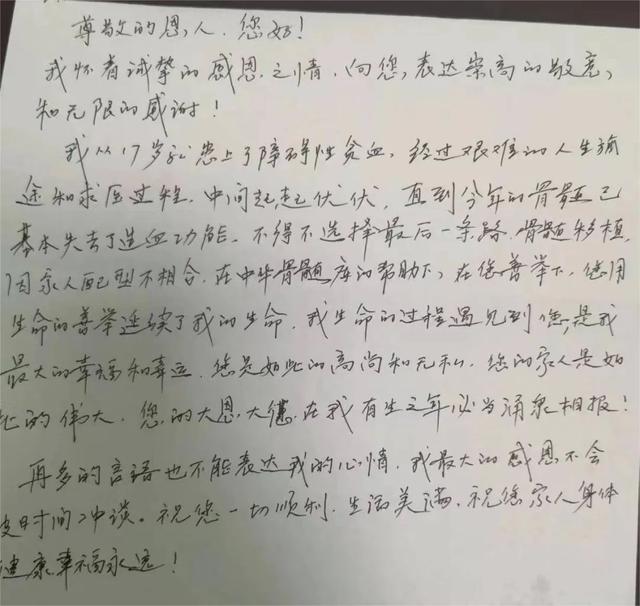 尊敬的恩人，您好！
我怀着诚挚的感恩之情，向您，表达崇高的敬意，
和无限的感谢！
我从17岁就患上了障碍性贫血，经过艰难的人生旅
途和求医过程，中间起起伏伏，直到今年的骨髓已
基本失去了造血功能，不得不选择最后一条路，骨髓移植，
因家人配型不相合，在中华骨髓库的帮助下，在您善举下，您用
生命的善举延续了我的生命，我生命的过程遇见到您，是我
最大的幸福和幸运，您是如此的高尚和无私，您的家人是如
此的伟大，您的大恩大德，在我有生之年必当涌泉相报！
再多的言语也不能表达我的心情，我最大的感恩不会
被时间冲淡。祝您一切顺利，生活美满，祝您家人身体
健康幸福永远！